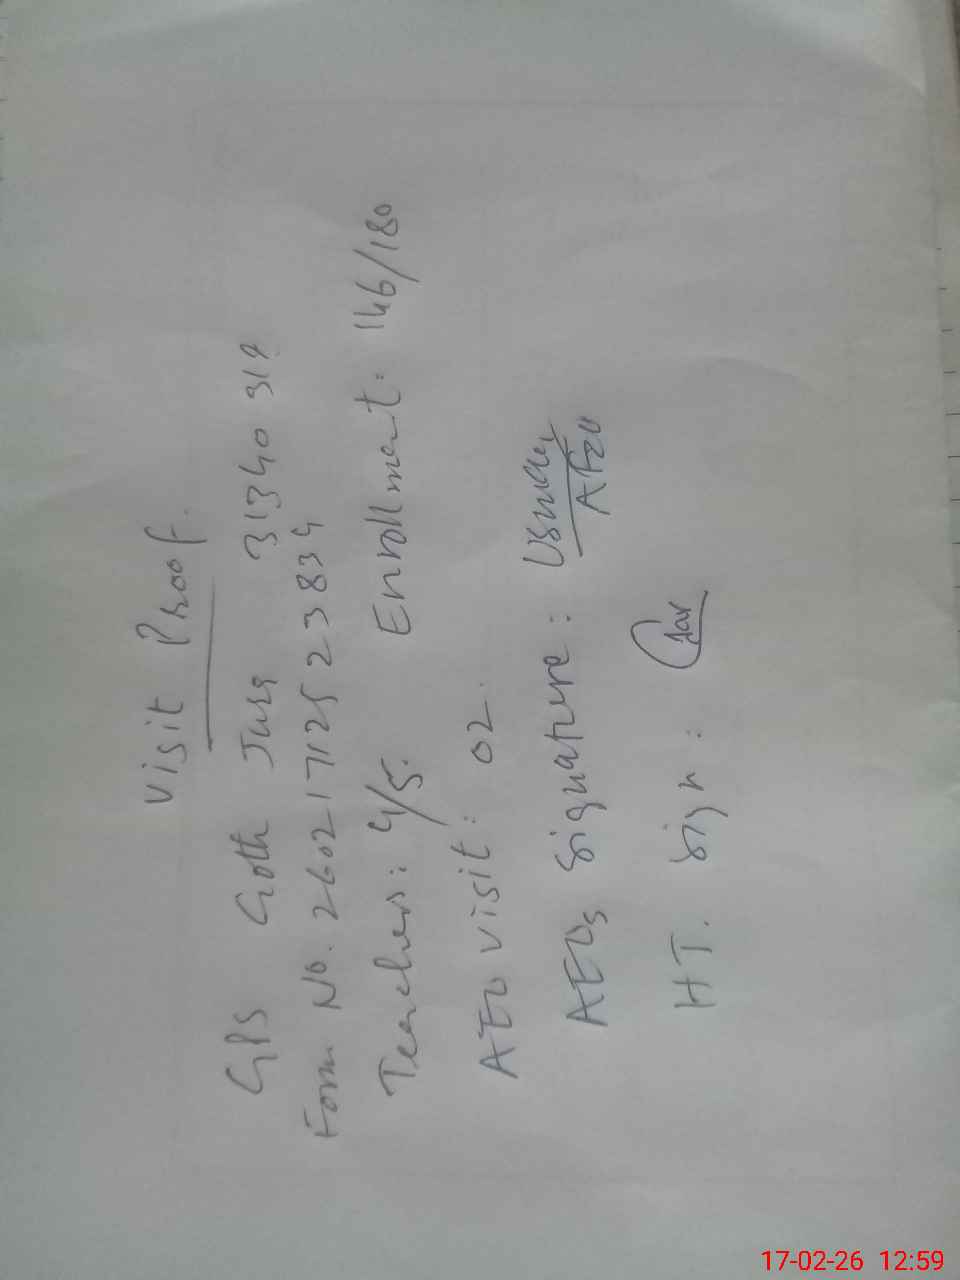 Visit Proof.
GPS Goth Jusq 31340 312
Form No. 26021712523834
Teachers: 4/5. Enrollment: 146/180
AEO visit: 02.
AEOs signature:
AEO
HT. sign:
17-02-26 12:59